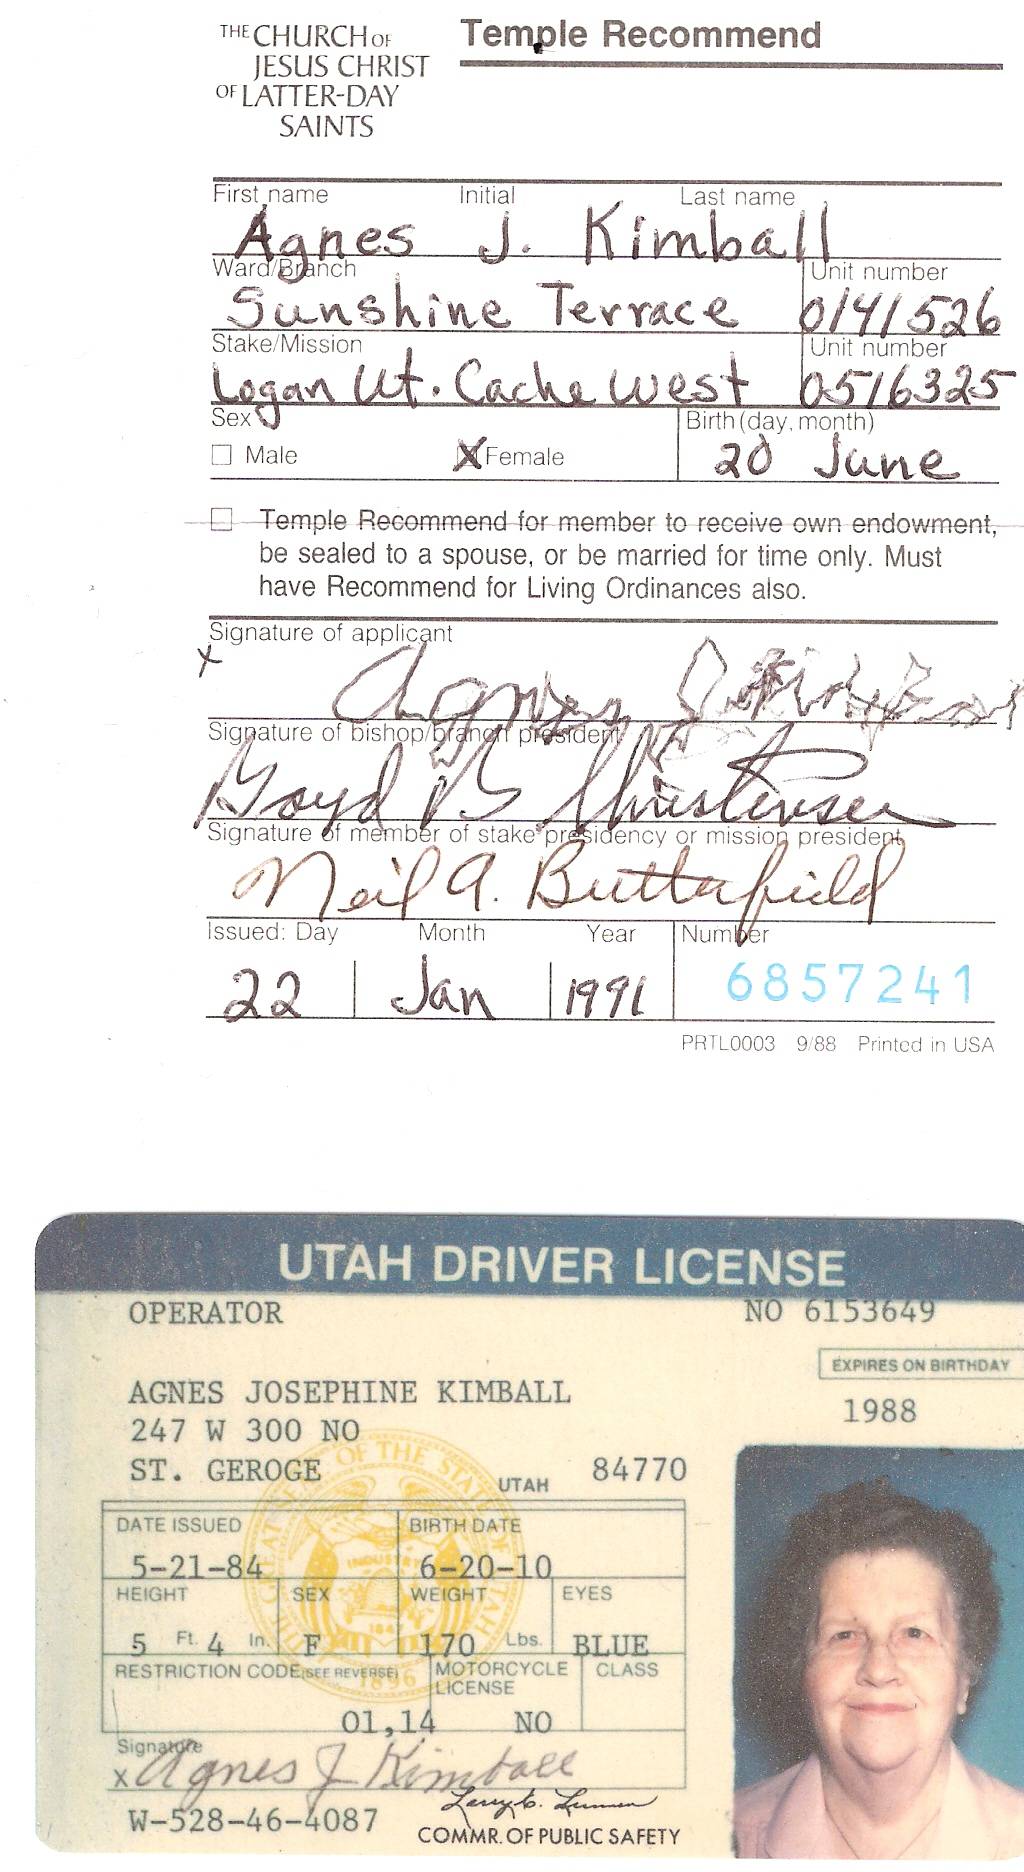 THE CHURCH OF
JESUS CHRIST
OF LATTER-DAY
SAINTS
Temple Recommend
First name Initial Last name
Agnes J. Kimball
Ward/Branch Unit number
Sunshine Terrace 0141526
Stake/Mission Unit number
Logan Ut. Cache West 0516325
Sex Birth (day, month)
Male X Female 20 June
Temple Recommend for member to receive own endowment,
be sealed to a spouse, or be married for time only. Must
have Recommend for Living Ordinances also.
Signature of applicant
x Agnes J
Signature of bishop/branch president
B Christensen
Signature of member of stake presidency or mission president
Neil A. Butterfield
Issued: Day Month Year Number
22 Jan 1991 6857241
PRTL0003 9/88 Printed in USA
UTAH DRIVER LICENSE
OPERATOR NO 6153649
EXPIRES ON BIRTHDAY
AGNES JOSEPHINE KIMBALL 1988
247 W 300 NO
ST. GEROGE UTAH 84770
DATE ISSUED BIRTH DATE
5-21-84 6-20-10
HEIGHT SEX WEIGHT EYES
5 Ft. 4 In. F 170 Lbs. BLUE
RESTRICTION CODE (SEE REVERSE) MOTORCYCLE LICENSE CLASS
01,14 NO
Signature
X Agnes J Kimball
W-528-46-4087
COMMR. OF PUBLIC SAFETY
THE GREAT SEAL OF THE STATE OF UTAH
INDUSTRY
1847
1896